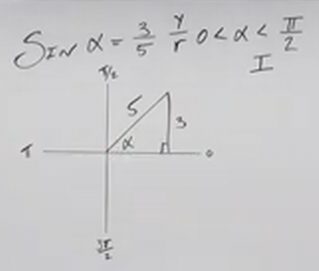 Sin α = 3/5 y/r 0 < α < π/2
I
π/2
5
3
α
π
0
3π/2